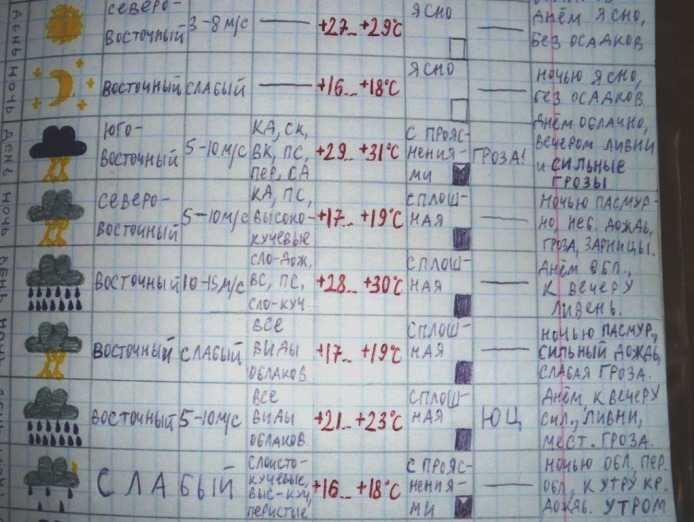 СЕВЕРО-
ВОСТОЧНЫЙ
3-8 М/С
+27.. +29°С
ЯСНО
ДНЁМ ЯСНО,
БЕЗ ОСАДКОВ
НОЧЬ
ВОСТОЧНЫЙ
СЛАБЫЙ
+16... +18°С
ЯСНО
НОЧЬЮ ЯСНО,
БЕЗ ОСАДКОВ
ДЕНЬ
ЮГО-
ВОСТОЧНЫЙ
5-10 М/С
КА, СК,
ВК, ПС,
ПЕР, СА
+29.. +31°С
С ПРОЯС-
НЕНИЯ-
МИ
ГРОЗА!
ДНЁМ ОБЛАЧНО,
ВЕЧЕРОМ ЛИВНИ
И СИЛЬНЫЕ
ГРОЗЫ
НОЧЬ
СЕВЕРО-
ВОСТОЧНЫЙ
5-10 М/С
КА, ПС,
ВЫСОКО-
КУЧЕВЫЕ
+17... +19°С
СПЛОШ-
НАЯ
НОЧЬЮ ПАСМУР-
НО, НЕБ. ДОЖДЬ,
ГРОЗА, ЗАРНИЦЫ.
ДЕНЬ
ВОСТОЧНЫЙ
10-15 М/С
СЛО-ДОЖ,
ВС, ПС,
СЛО-КУЧ
+28... +30°С
СПЛОШ-
НАЯ
ДНЁМ ОБЛ.,
К ВЕЧЕРУ
ЛИВЕНЬ.
НОЧЬ
ВОСТОЧНЫЙ
СЛАБЫЙ
ВСЕ
ВИДЫ
ОБЛАКОВ
+17... +19°С
СПЛОШ-
НАЯ
НОЧЬЮ ПАСМУР,
СИЛЬНЫЙ ДОЖДЬ,
СЛАБАЯ ГРОЗА.
ВОСТОЧНЫЙ
5-10 М/С
ВСЕ
ВИДЫ
ОБЛАКОВ
+21... +23°С
СПЛОШ-
НАЯ
ЮЦ
ДНЁМ К ВЕЧЕРУ
СИЛ. ЛИВНИ,
МЕСТ. ГРОЗА.
СЛАБЫЙ
СЛОИСТО-
КУЧЕВЫЕ,
ВЫС-КУЧ,
ПЕРИСТЫЕ
+16... +18°С
С ПРОЯС-
НЕНИЯ-
МИ
НОЧЬЮ ОБЛ, ПЕР.
ОБЛ, К УТРУ КР.
ДОЖДЬ. УТРОМ